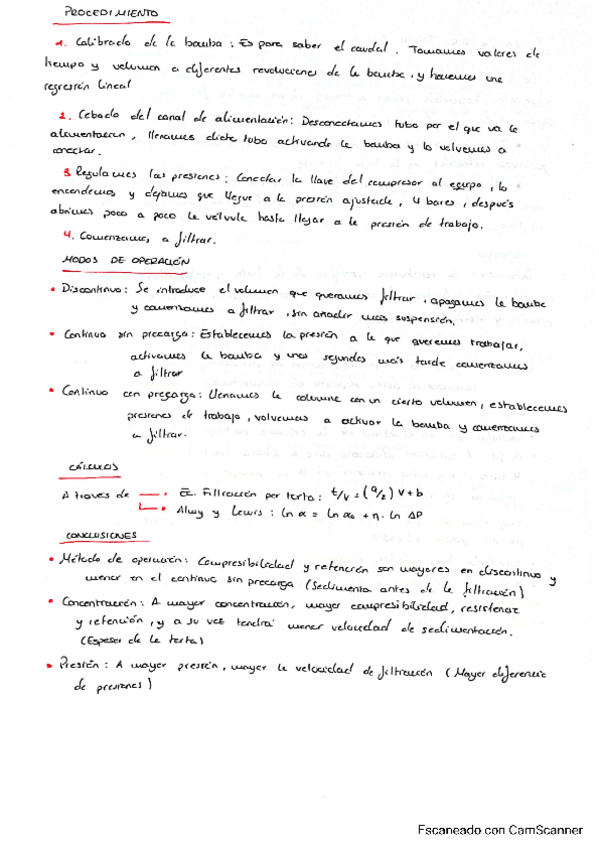 PROCEDIMIENTO
1. Calibrado de la bomba: Es para saber el caudal. Tomamos valores de
tiempo y volumen a diferentes revoluciones de la bomba, y hacemos una
regresión lineal
2. Cebado del canal de alimentación: Desconectamos tubo por el que va la
alimentación, llenamos dicho tubo activando la bomba y lo volvemos a
conectar.
3. Regulamos las presiones: Conectar la llave del compresor al equipo, lo
encendemos y dejamos que llegue a la presión ajustada, 4 bares, después
abrimos poco a poco la válvula hasta llegar a la presión de trabajo.
4. Comenzamos a filtrar.
MODOS DE OPERACIÓN
• Discontinuo: Se introduce el volumen que queramos filtrar, apagamos la bomba
y comenzamos a filtrar, sin añadir más suspensión.
• Continuo sin precarga: Establecemos la presión a la que queremos trabajar,
activamos la bomba y unos segundos más tarde comenzamos
a filtrar
• Continuo con precarga: Llenamos la columna con un cierto volumen, establecemos
presiones de trabajo, volvemos a activar la bomba y comenzamos
a filtrar.
CÁLCULOS
A través de → Ec. Filtración por torta: t/v = (a/2) v + b
→ Almy y Lewis: ln α = ln α0 + n · ln ΔP
CONCLUSIONES
• Método de operación: Compresibilidad y retención son mayores en discontinuo y
menor en el continuo sin precarga (Sedimenta antes de la filtración)
• Concentración: A mayor concentración, mayor compresibilidad, resistencia
y retención, y a su vez tendrá menor velocidad de sedimentación.
(Espesor de la torta)
• Presión: A mayor presión, mayor la velocidad de filtración (Mayor diferencia
de presiones)
Escaneado con CamScanner